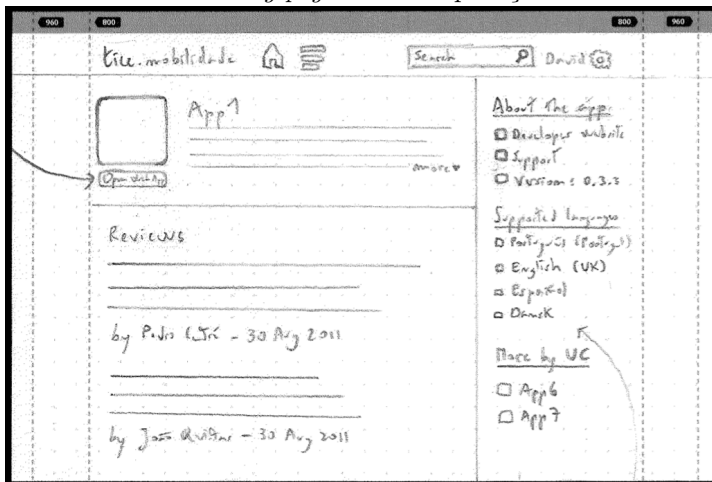 960 800 800 960
tice.mobilidade Search David
App 1
more
Open Web App
Reviews
by Pedro - 30 Aug 2011
by João - 30 Aug 2011
About the app:
Developer website
Support
Version: 0.3.3
Supported languages
Português (Portugal)
English (UK)
Español
Dansk
More by UC
App6
App7